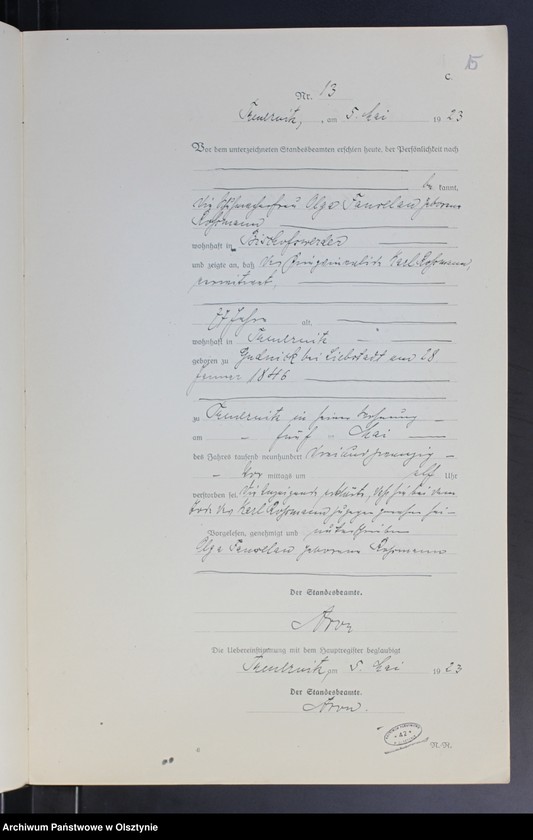 15
C.
Nr. 13
am 5. Mai 1923
Vor dem unterzeichneten Standesbeamten erschien heute, der Persönlichkeit nach
be kannt,
die Olga geborene
Rohrmann
wohnhaft in Bischofswerder
und zeigte an, daß der Karl Rohrmann,
77 Jahre alt,
wohnhaft in
geboren zu bei Liebstadt am 28
Januar 1846
zu in seiner Wohnung
am fünf Mai
des Jahres tausend neunhundert dreiundzwanzig
Vor mittags um elf Uhr
verstorben sei. Die Anzeigende erklärte, daß sie bei dem
Tode des Karl Rohrmann zugegen gewesen sei
Vorgelesen, genehmigt und unterschrieben
Olga geborene Rohrmann
Der Standesbeamte.
Die Uebereinstimmung mit dem Hauptregister beglaubigt
am 5. Mai 1923
Der Standesbeamte.
Archiwum Państwowe w Olsztynie